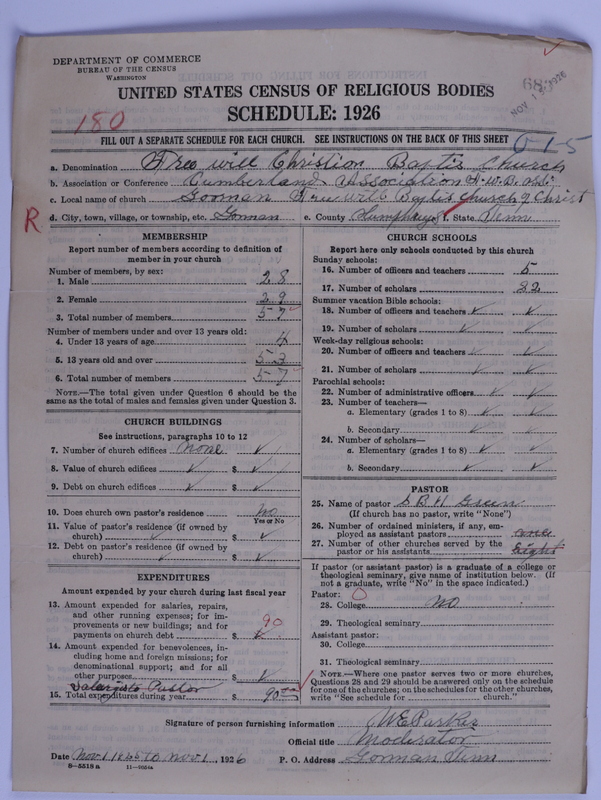 DEPARTMENT OF COMMERCE
BUREAU OF THE CENSUS
WASHINGTON
UNITED STATES CENSUS OF RELIGIOUS BODIES
SCHEDULE: 1926
180
NOV 1 1926
FILL OUT A SEPARATE SCHEDULE FOR EACH CHURCH. SEE INSTRUCTIONS ON THE BACK OF THIS SHEET
0-1-5
a. Denomination Free will Christion Baptis Church
b. Association or Conference Cumberland Association F.W.B.
c. Local name of church Gorman Free will Baptis Church of Christ
R
d. City, town, village, or township, etc. Gorman e. County Humphreys f. State Tenn
MEMBERSHIP
Report number of members according to definition of
member in your church
Number of members, by sex:
1. Male 28
2. Female 29
3. Total number of members 57
Number of members under and over 13 years old:
4. Under 13 years of age 4
5. 13 years old and over 53
6. Total number of members 57
NOTE.—The total given under Question 6 should be
the same as the total of males and females given under Question 3.
CHURCH BUILDINGS
See instructions, paragraphs 10 to 12
7. Number of church edifices none ✓
8. Value of church edifices ✓ $ ✓
9. Debt on church edifices ✓ $ ✓
10. Does church own pastor's residence No
Yes or No
11. Value of pastor's residence (if owned by
church) ✓ $ ✓
12. Debt on pastor's residence (if owned by
church) ✓ $ ✓
EXPENDITURES
Amount expended by your church during last fiscal year
13. Amount expended for salaries, repairs,
and other running expenses; for im-
provements or new buildings; and for
payments on church debt $ 90 ✓
14. Amount expended for benevolences, in-
cluding home and foreign missions; for
denominational support; and for all
other purposes $ ✓
Salary to Pastor
15. Total expenditures during year $ 90
CHURCH SCHOOLS
Report here only schools conducted by this church
Sunday schools:
16. Number of officers and teachers 5
17. Number of scholars 22
Summer vacation Bible schools:
18. Number of officers and teachers ✓ ✓
19. Number of scholars ✓ ✓
Week-day religious schools:
20. Number of officers and teachers ✓ ✓
21. Number of scholars ✓ ✓
Parochial schools:
22. Number of administrative officers ✓ ✓
23. Number of teachers—
a. Elementary (grades 1 to 8) ✓ ✓
b. Secondary ✓ ✓
24. Number of scholars—
a. Elementary (grades 1 to 8) ✓ ✓
b. Secondary ✓ ✓
PASTOR
25. Name of pastor S B H Green
(If church has no pastor, write "None")
26. Number of ordained ministers, if any, em-
ployed as assistant pastors one
27. Number of other churches served by the
pastor or his assistants eight
If pastor (or assistant pastor) is a graduate of a college or
theological seminary, give name of institution below. (If
not a graduate, write "No" in the space indicated.)
Pastor: 0
28. College no
29. Theological seminary
Assistant pastor:
30. College
31. Theological seminary
NOTE.—Where one pastor serves two or more churches,
Questions 28 and 29 should be answered only on the schedule
for one of the churches; on the schedules for the other churches,
write "See schedule for church."
Signature of person furnishing information W E Parker
Official title Moderator
Date Nov 1 1925 to nov 1, 1926 P. O. Address Gorman Tenn
8—5518 a 11—9054a